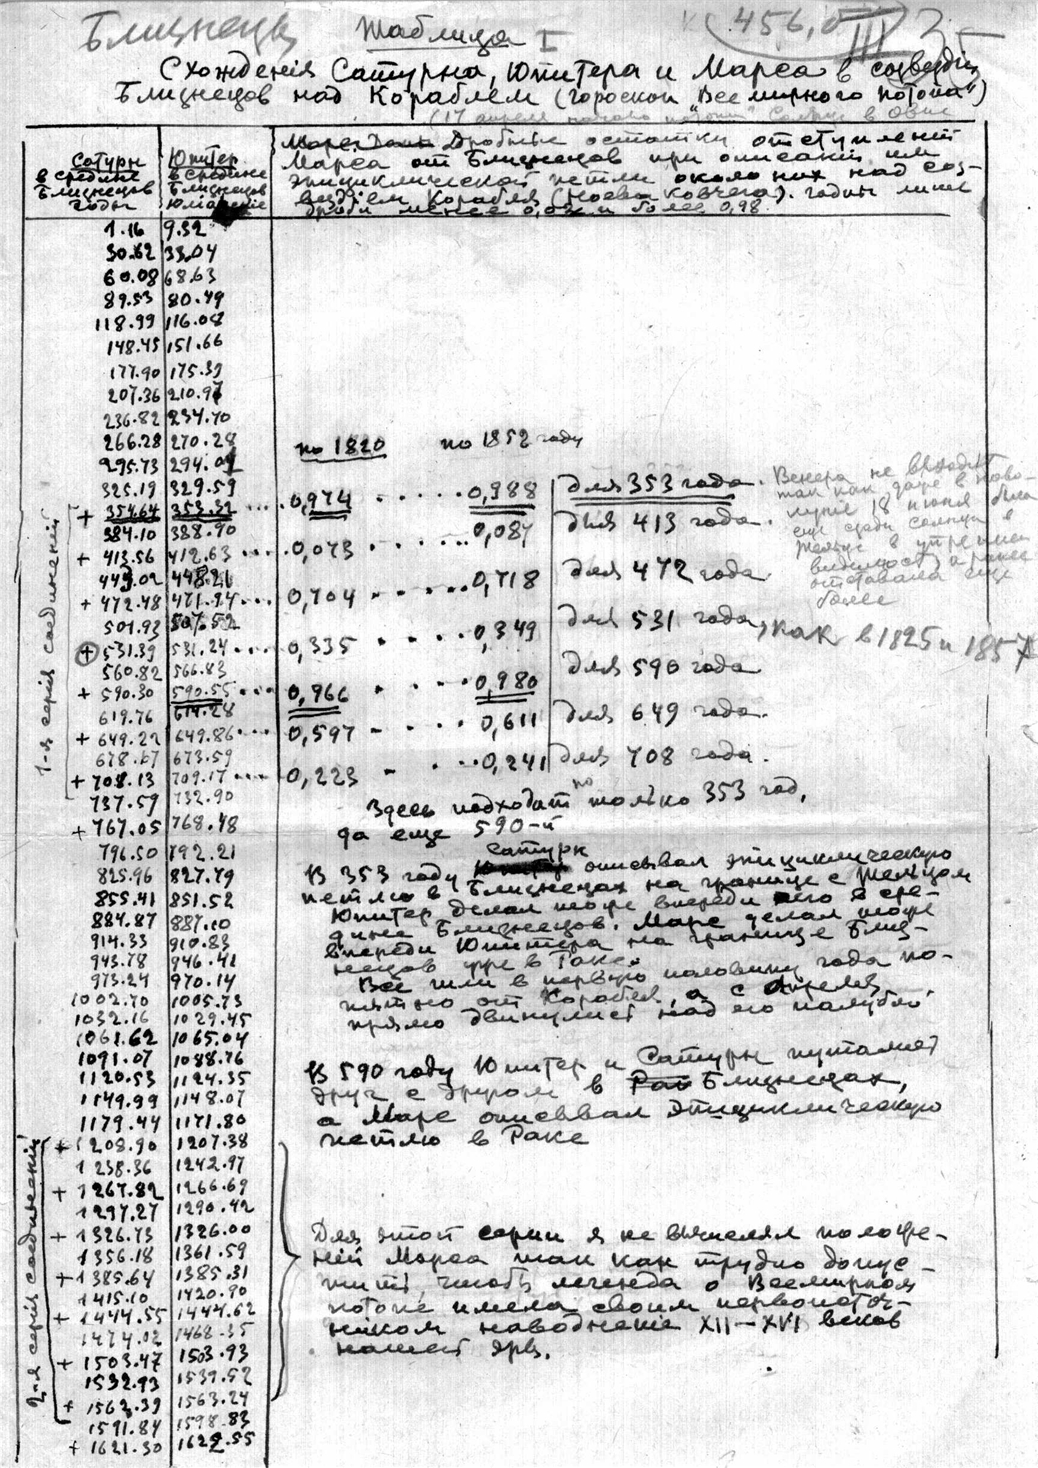 Близнецы Таблица I 456,0 III
Схожденія Сатурна, Юпитера и Марса в созвездіи
Близнецов над Кораблем (гороскоп "Всемирного потопа")
(17 апреля начало "потопа" Солнце в Овне
Сатурн
в средине
Близнецов
годы
Юпитер
в средине
Близнецов
Юліанские
Марс. Дробные остатки отступленій
Марса от Близнецов при описаніи им
эпициклической петли около них над соз-
вездіем Корабля (Ноева Ковчега). годны лишь
дроби менее 0,02 и более 0,98
1.16 9.32
30.62 33.04
60.08 68.63
89.53 80.49
118.99 116.08
148.45 151.66
177.90 175.39
207.36 210.97
236.82 234.70
266.28 270.28
295.73 294.01
325.19 329.59
по 1820 по 1852 году
+ 354.64 353.32 0,974 0,988 для 353 года.
384.10 388.90
+ 413.56 412.63 0,073 0,087 для 413 года.
443.02 448.21
+ 472.48 471.94 0,704 0,718 для 472 года
501.93 507.52
+ 531.39 531.24 0,335 0,349 для 531 года, как в 1825 и 1857
560.82 566.83
+ 590.30 590.55 0,966 0,980 для 590 года
619.76 614.28
+ 649.22 649.86 0,597 0,611 для 649 года.
678.67 673.59
+ 708.13 709.17 0,223 0,241 для 708 года.
737.59 732.90
+ 767.05 768.48
796.50 792.21
825.96 827.79
855.41 851.52
884.87 887.10
914.33 910.83
943.78 946.41
973.24 970.14
1002.70 1005.73
1032.16 1029.45
1061.62 1065.04
1091.07 1088.76
1120.53 1124.35
1149.99 1148.07
1179.44 1171.80
+ 1208.90 1207.38
1238.36 1242.97
+ 1267.82 1266.69
1297.27 1290.42
+ 1326.73 1326.00
1356.18 1361.59
+ 1385.64 1385.31
1415.10 1420.90
+ 1444.55 1444.62
1474.02 1468.35
+ 1503.47 1503.93
1532.93 1539.52
+ 1562.39 1563.24
1591.84 1598.83
+ 1621.30 1622.55
1-я серія соединеній
2-я серія соединеній
Венера не выходит
так как даже в ново-
лунія 18 июня была
еще среди солнца в
видимости, а ранее
отставала еще
более
Здесь подходит только 353 год,
но
да еще 590-й
Сатурн
В 353 году описывал эпициклическую
петлю в Близнецах на границе с Тельцом
Юпитер делал тоже впереди его в сре-
дине Близнецов. Марс делал тоже
впереди Юпитера на границе Близ-
нецов уже в Раке.
Все шли в первую половину года по-
пятно от Корабля, а с Апреля
прямо двинулись над его палубой
В 590 году Юпитер и Сатурн путались
друг с другом в Рак Близнецах,
а Марс описывал эпициклическую
петлю в Раке
Для этой серии я не вычислял положе-
ній Марса так как трудно допус-
тить, чтобы легенда о Всемирном
потопе имела своим первоисточ-
ником наводненіе XII–XVI веков
нашей эры.